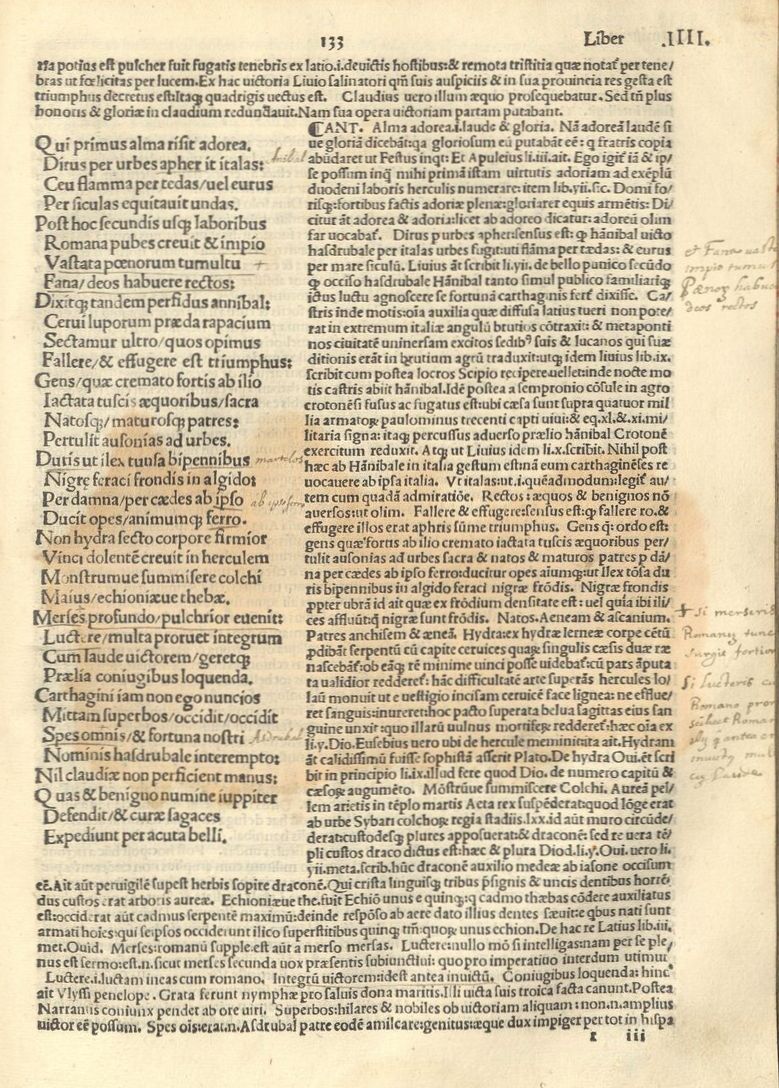 133
Liber .IIII.
na potius est pulcher fuit fugatis tenebris ex latio.i.deuictis hostibus:& remota tristitia quæ notaf per tene/
bras ut fœlicitas per lucem.Ex hac uictoria Liuio salinatori qm̃ suis auspiciis & in sua prouincia res gesta est
triumphus decretus est:Itaqꝫ quadrigis uectus est. Claudius uero illum æquo prosequebatur. Sed tñ plus
honoris & gloriæ in claudium redundauit.Nam sua opera uictoriam partam putabant.
Qui primus alma risit adorea.
Dirus per urbes apher it italas:
Ceu flamma per tedas/uel eurus
Per siculas equitauit undas.
Post hoc secundis usqꝫ laboribus
Romana pubes creuit & impio
Vastata pœnorum tumultu
Fana/deos habuere rectos:
Dixitqꝫ tandem perfidus annibal:
Cerui luporum præda rapacium
Sectamur ultro/quos opimus
Fallere/& effugere est triumphus:
Gens/quæ cremato fortis ab ilio
Iactata tuscis æquoribus/sacra
Natosqꝫ/maturosqꝫ patres:
Pertulit ausonias ad urbes.
Duris ut ilex tunsa bipennibus
Nigrę feraci frondis in algido:
Per damna/per cædes ab ipso
Ducit opes/animumqꝫ ferro.
Non hydra secto corpore firmior
Vinci dolentē creuit in herculem
Monstrumue summisere colchi
Maius/echioniæue thebæ.
Merses profundo/pulchrior euenit:
Luctere/multa proruet integrum
Cum laude uictorem/geretqꝫ
Prælia coniugibus loquenda.
Carthagini iam non ego nuncios
Mittam superbos/occidit/occidit
Spes omnis/& fortuna nostri
Nominis hasdrubale interempto:
Nil claudiæ non perficient manus:
Quas & benigno numine iuppiter
Defendit/& curæ sagaces
Expediunt per acuta belli.
CANT. Alma adorea.i.laude & gloria. Nã adoreã laudē si
ue gloriã dicebãt:qa gloriosum eũ putabãt eē: q fratris copia
abũdaret ut Festus inqt: Et Apuleius li.iii.ait. Ego igif iã & ip/
se possum inqꝫ mihi primã istam uirtutis adoriam ad exēplũ
duodeni laboris herculis numerare:item lib.vii.sic. Domi fo/
risqꝫ:fortibus factis adoriæ plenæ:gloriarer equis armētis: Di/
citur āt adorea & adoria:licet ab adoreo dicatur: adoreũ olim
far uocabaf. Dirus p urbes apher:sensus est: q hãnibal uicto
hasdrubale per italas urbes fugit:uti flãma per tædas: & eurus
per mare siculũ. Liuius āt scribit li.vii. de bello punico secũdo
q occiso hasdrubale Hãnibal tanto simul publico familiariqꝫ
ictus luctu agnoscere se fortunã carthaginis ferf dixisse. Ca/
stris inde motis:oïa auxilia quæ diffusa latius tueri non pote/
rat in extremum italiæ angulũ brutios cõtraxit: & metaponti
nos ciuitatē uniuersam excitos sedib⁹ suis & lucanos qui suæ
ditionis erãt in brutium agrũ traduxit:utqꝫ idem liuius lib.ix.
scribit cum postea locros Scipio recipere uellet:inde nocte mo
tis castris abiit hãnibal.Idē postea a sempronio cõsule in agro
crotonēsi fusus ac fugatus est:ubi cæsa sunt supra quatuor mil
lia armatoꝝ paulominus trecenti capti uiui:& eq.xl.& .xi.mi/
litaria signa: itaqꝫ percussus aduerso prælio hãnibal Crotonē
exercitum reduxit. Atqꝫ ut Liuius idem li.x.scribit. Nihil post
hæc ab Hãnibale in italia gestum est:nã eum carthaginēses re
uocauere ab ipsa italia. Vt italas:ut.i.quēadmodum:legif aũ/
tem cum quadã admiratiõe. Rectos: æquos & benignos nõ
auersos:ut olim. Fallere & effugere:sensus est:q fallere ro.&
effugere illos erat aphris sũme triumphus. Gens q: ordo est:
gens quæ fortis ab ilio cremato iactata tuscis æquoribus per/
tulit ausonias ad urbes sacra & natos & maturos patres p dã/
na per cædes ab ipso ferro:ducitur opes aiumqꝫ:ut Ilex tõsa du
ris bipennibus in algido feraci nigræ frõdis. Nigræ frondis
ꝓpter ubrã id ait quæ ex frõdium densitate est: uel quia ibi ili/
ces affluũtqꝫ nigræ sunt frõdis. Natos.Aeneam & ascanium.
Patres anchisem & æneã. Hydra:ex hydræ lerneæ corpe cētũ
ꝓdibãt serpentũ cũ capite ceruices quaꝝ singulis cæsis duæ ræ
nascebãf:ob eãqꝫ rē minime uinci posse uidebaf:cũ pars āputa
ta ualidior redderef: hãc difficultatē arte superãs hercules Io/
laũ monuit ut e uestigio incisam ceruicē face lignea: ne efflue/
ret sanguis:inureret:hoc pacto superata belua sagittas eius san
guine unxit:quo illarũ uulnus mortifeꝝ redderef:hæc oïa ex
li.y.Dio.Eusebius uero ubi de hercule meminit:ita ait.Hydram
āt calidissimũ fuisse sophistã asserit Plato. De hydra Oui.ēt scri
bit in principio li.ix.illud fere quod Dio. de numero capitũ &
cæsoꝝ augumēto. Mõstrũue summiscere Colchi. Aureã pel/
lem arietis in tēplo martis Aeta rex suspēderat:quod lõge erat
ab urbe Sybari colchoꝝ regia stadiis.lxx.id aũt muro circũde/
derat:custodesqꝫ plures apposuerat:& draconē: sed re uera tē/
pli custos draco dictus est:hæc & plura Diod.li.y.Oui. uero li.
yii.meta.scrib.hũc draconē auxilio medeæ ab iasone occisum
eē.Ait aũt peruigilē supest herbis sopire draconē.Qui crista linguisqꝫ tribus p̃signis & uncis dentibus horrē/
dus custos erat arboris aureæ. Echioniæue the.fuit Echiõ unus e quinqꝫ:q cadmo thæbas cõdere auxiliatus
est:occiderat aũt cadmus serpentē maximũ:deinde respõso ab aere dato illius dentes sæuit:e qbus nati sunt
armati hoïes:qui seipsos occiderunt ilico superstitibus quinqꝫ tm̃:quoꝝ unus echion.De hac re Latius lib.iii.
met.Ouid. Merses:romanũ supple.est aũt a merso mersas. Luctere:nullo mõ si intelligas:nam per se ple/
nus est sermo:est.n.sicut merses secunda uox præsentis subiunctiui: quo pro imperatiuo interdum utimur
Luctere.i.luctam ineas cum romano. Integrũ uictorem:idest antea inuictũ. Coniugibus loquenda: hinc
ait Vlyssi penelope. Grata ferunt nymphæ pro saluis dona maritis.Illi uicta suis troica facta canunt.Postea
Narranus coniunx pendet ab ore uiri. Superbos:hilares & nobiles ob uictoriam aliquam: non.n.amplius
uictor eē possum. Spes oïs:erat.n.Asdrubal patre eodē amilcare:genitus:æque dux impiger per tot in hispa
r iii
Asdrubal